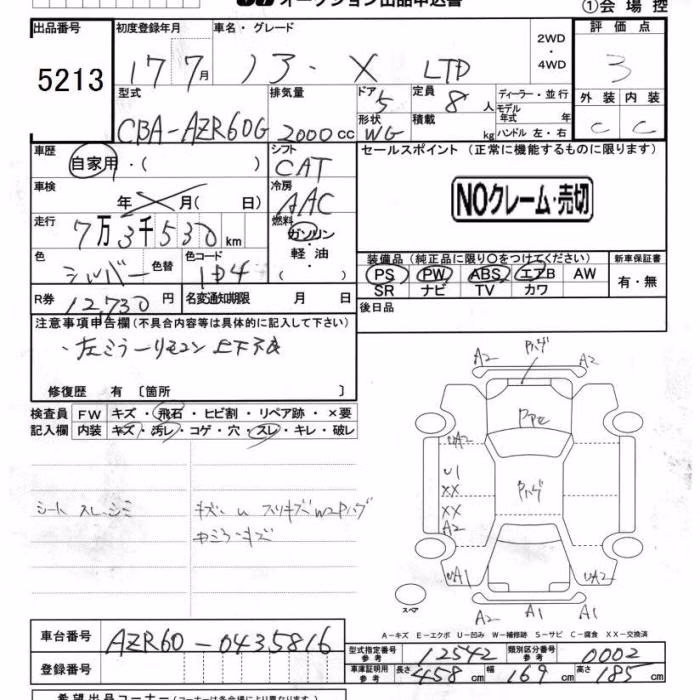 オークション出品申込書
①会場控
出品番号 初度登録年月 車名・グレード 2WD・4WD 評価点
5213 17 7月 ノア・X LTD 3
型式 排気量 ドア 定員 ディーラー・並行 外装 内装
CBA-AZR60G 2000cc 5 8人 モデル年式 年式 C C
形状 WG 積載 kg ハンドル 左・右
車歴 自家用・( ) シフト CAT セールスポイント (正常に機能するものに限ります)
車検 年 月( 日) 冷房 AAC NOクレーム・売切
走行 7万3千530km 燃料 ガソリン・軽油・( )
色 シルバー 色替 色コード 1D4
装備品(純正品に限り○をつけてください) 新車保証書
PS PW ABS エアB AW 有・無
SR ナビ TV カワ
R券 12,730円 名変通知期限 月 日 後日品
注意事項申告欄(不具合内容等は具体的に記入して下さい)
・左ミラーリモコン上下不良
修復歴 有 〔箇所 〕
検査員 FW キズ・飛石・ヒビ割・リペア跡・×要
記入欄 内装 キズ・汚レ・コゲ・穴・スレ・キレ・破レ
シート スレ、シミ
キズ・U スリキズW2Pハゲ
A2 Pハゲ A2
UA2
U1 Pハゲ
XX
XX
A2
UA1 UA2
スペア A2 A1 A1
A-キズ E-エクボ U-凹ミ W-補修跡 S-サビ C-腐食 XX-交換済
車台番号 AZR60-0435816
型式指定番号 参考 12542 類別区分番号 参考 0002
登録番号
車庫証明用 参考 長さ 458cm 幅 169cm 高さ 185cm
希望出品コーナー(コーナーは各会場により異なります)